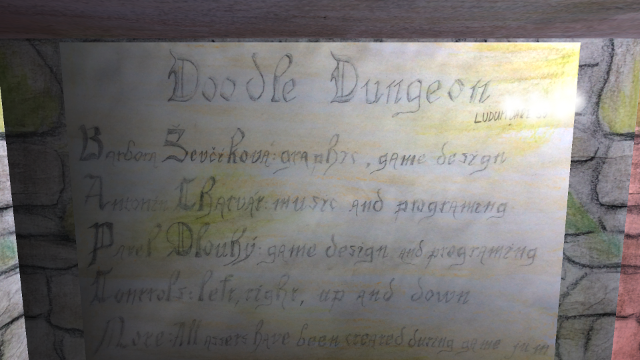 Doodle Dungeon
LUDUM
Barbora Ševčíková: graphic, game design
Antonín Charvát: music and programing
Pavel Dlouhý: game design and programing
Controls: left, right, up and down
More: All assets have been created during game